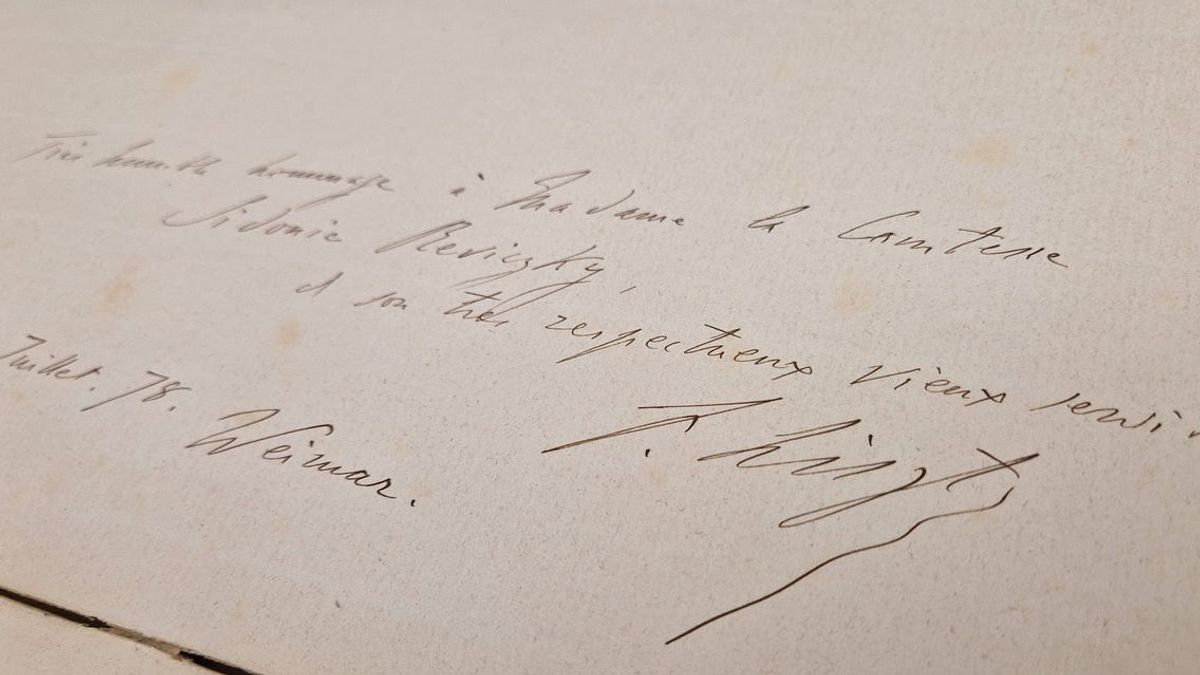 Très humble hommage à Madame la Comtesse
Sidonie Reviczky,
et son très respectueux vieux servi
Juillet. 78. Weimar.
F. Liszt